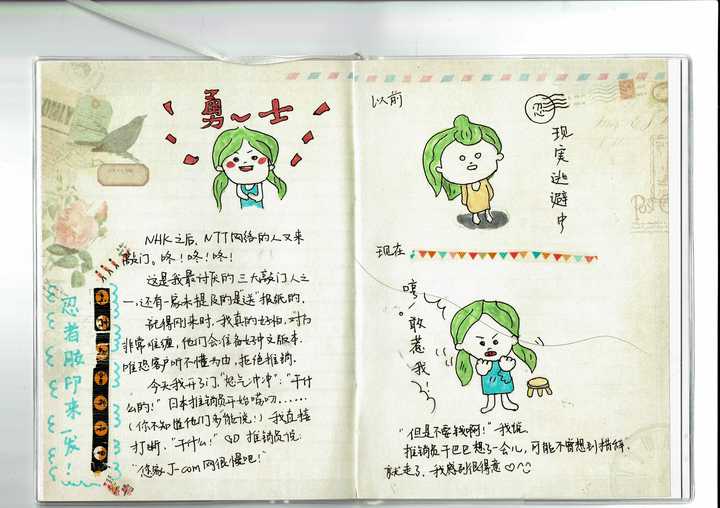 勇~士
NHK之后,NTT网络的人又来
敲门。咚!咚!咚!
这是我最讨厌的三大敲门人之
一,还有一家未提及的是"送"报纸的。
记得刚来时,我真的好怕,对方
非常难缠,他们会准备好中文版本,
唯恐客户听不懂为由,拒绝推销。
今天我开了门,"怒气冲冲":"干什
么的!"日本推销员开始唠叨……
(你不知道他们多能说!)我直接
打断,"干什么!" SO 推销员说:
"您家J-com网很慢吧!"
忍者脚印来一发!
以前
忍
现实逃避中
现在
哼!
敢惹我!!
"但是不要钱啊!"我说
推销员干巴巴想了一会儿,可能不曾想到措辞,
就走了,我感到很得意♡^^